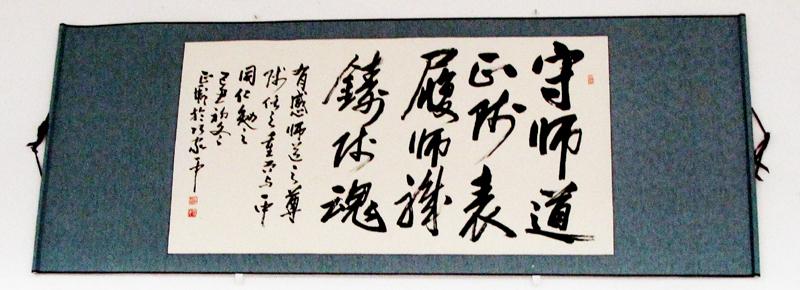 守师道
正师表
履师职
铸师魂
有感师道之尊
师位之重而与一中
同仁勉之
己丑初冬